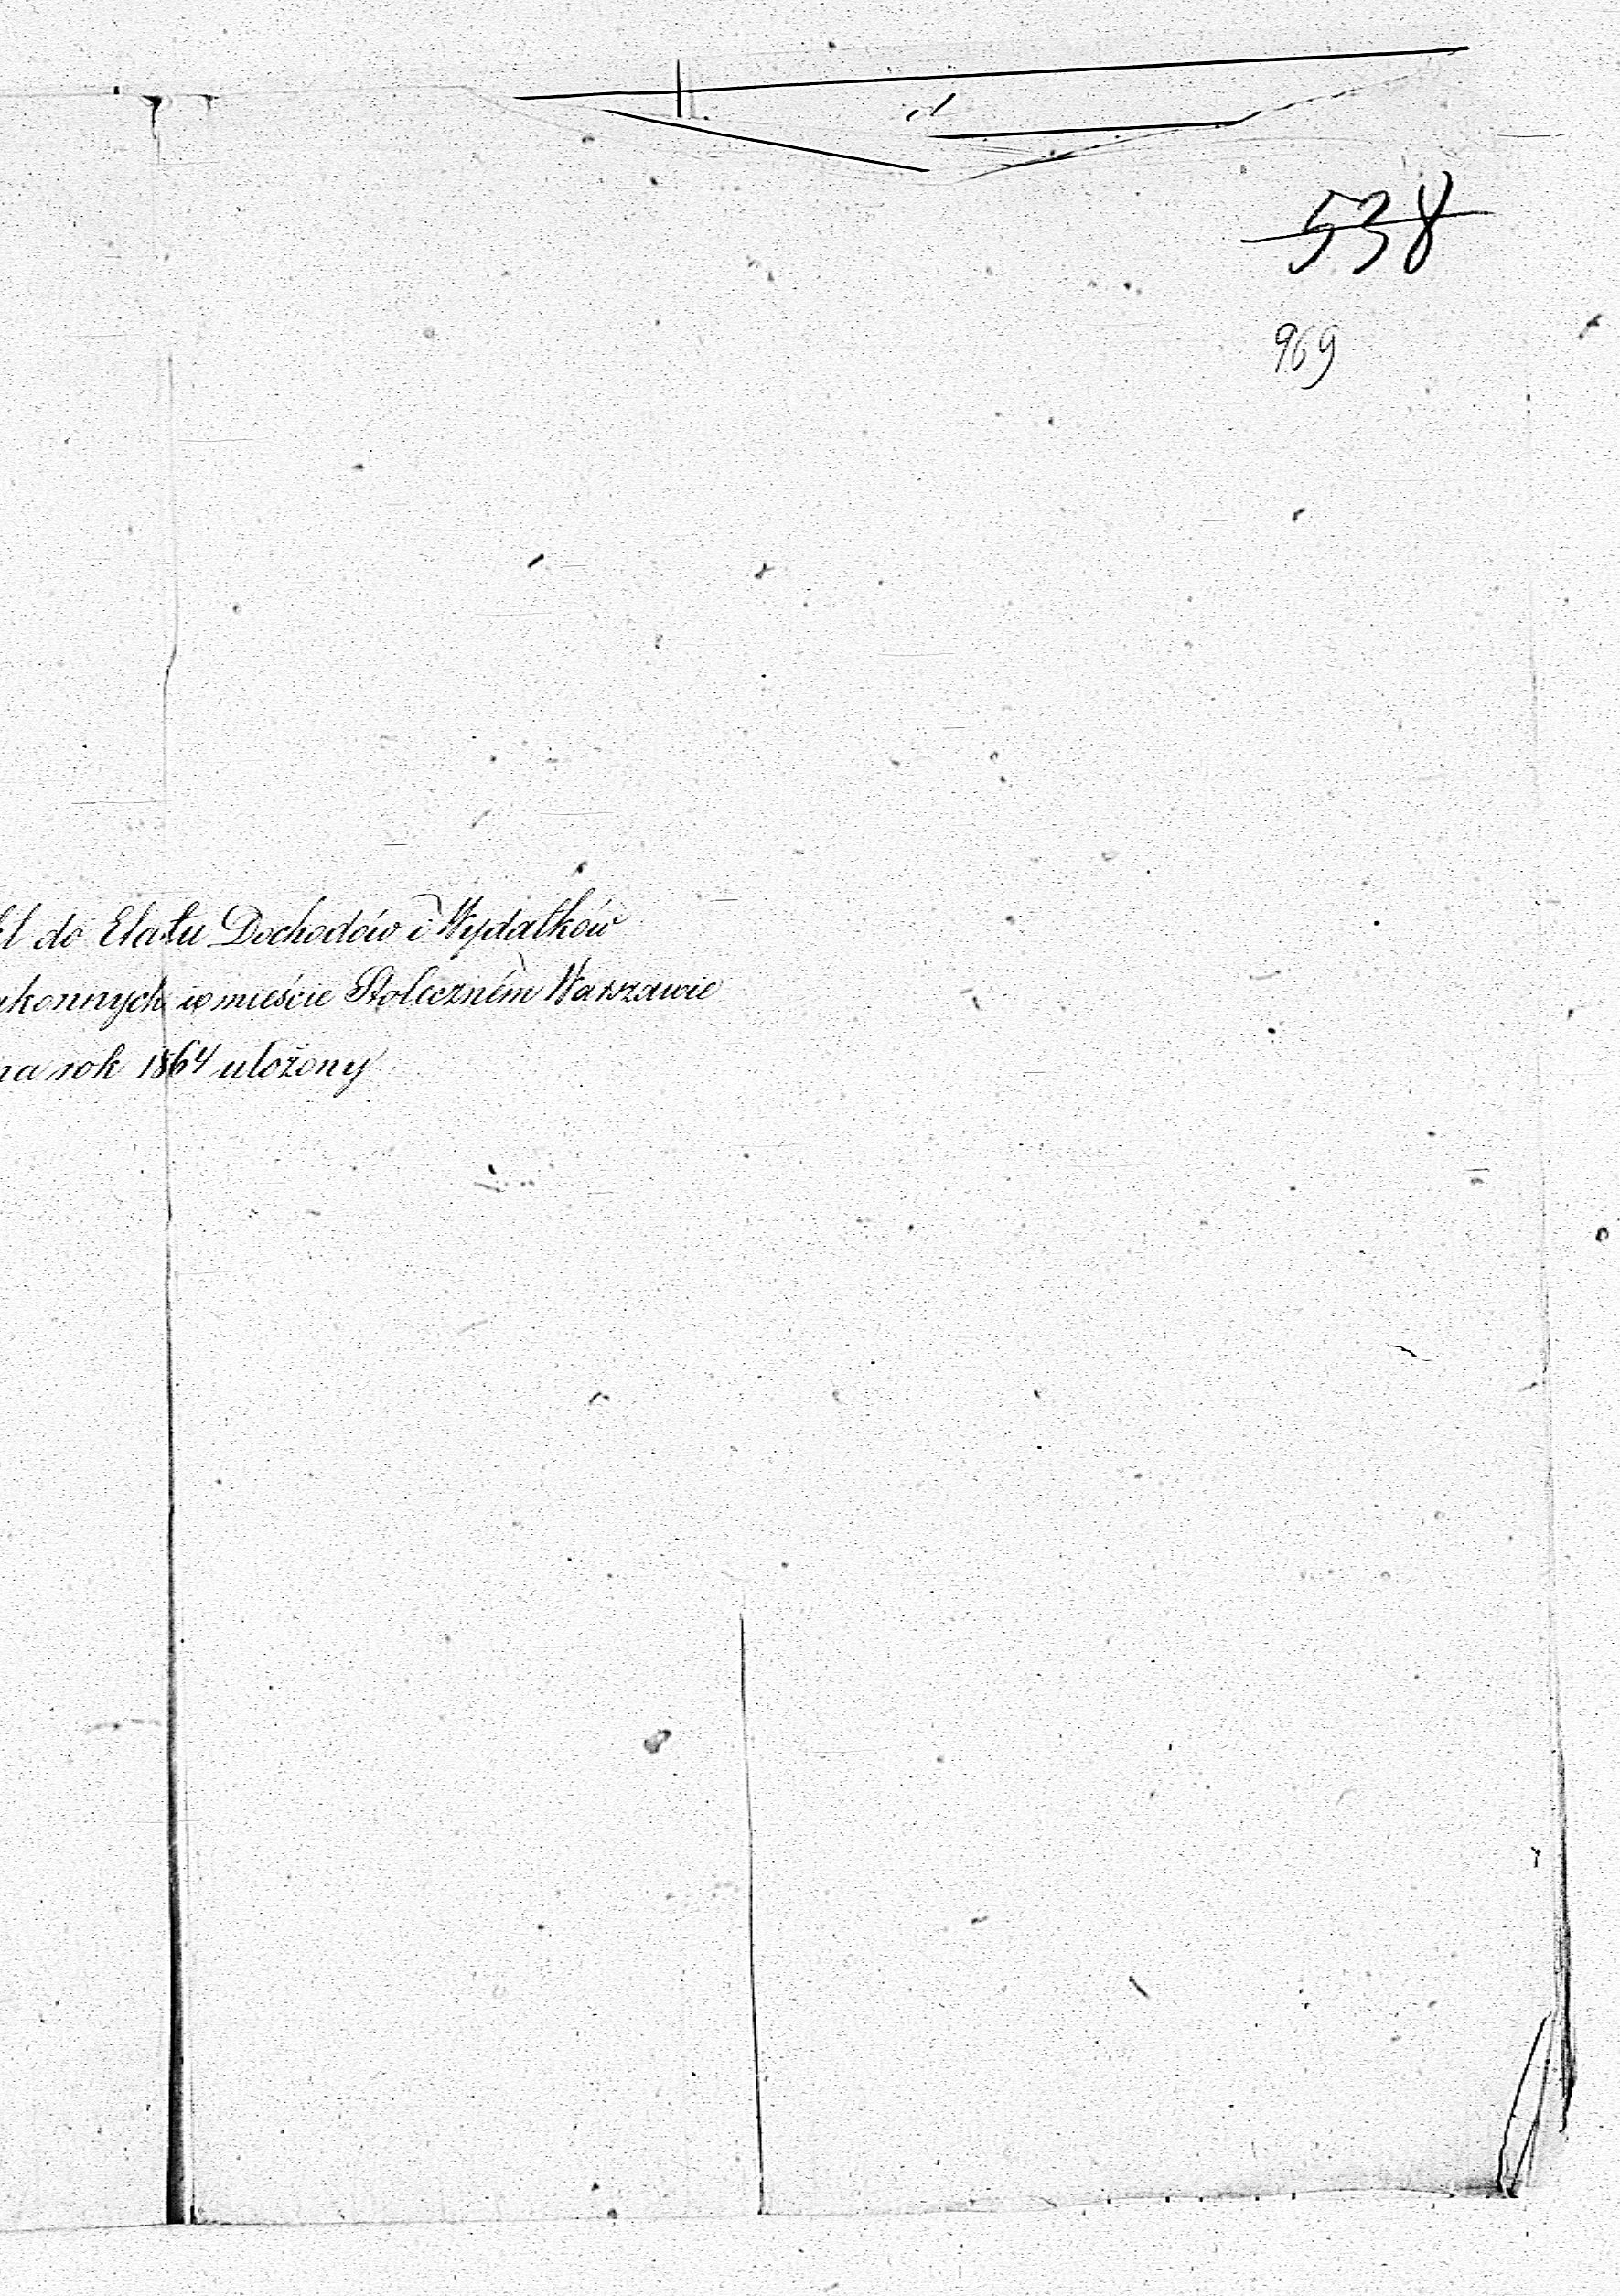 538
969
kt do Etatu Dochodów i Wydatków
konnych w mieście Stołeczném Warszawie
na rok 1864 ułożony